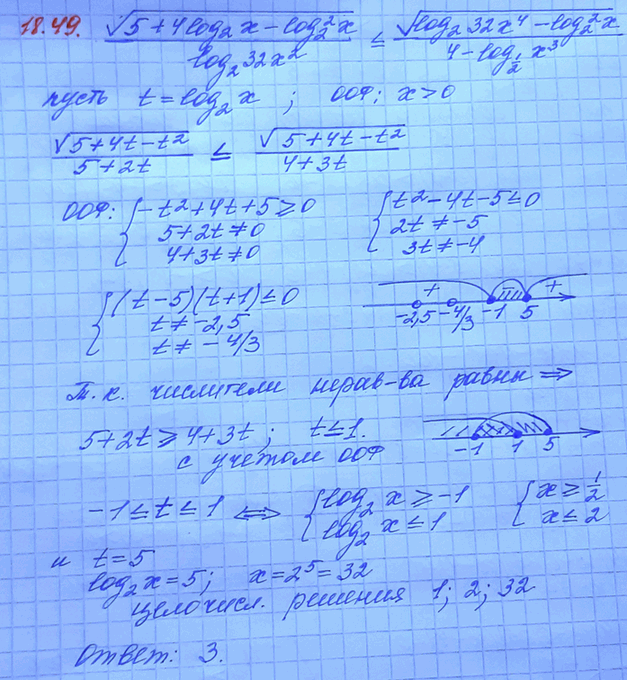 18.49. √(5+4log₂x−log₂²x) / log₂32x² ≤ √(log₂32x⁴−log₂²x) / 4−log_{1/2}x³
пусть t=log₂x ; ООФ: x>0
√(5+4t−t²) / 5+2t ≤ √(5+4t−t²) / 4+3t
ООФ: { −t²+4t+5≥0 { t²−4t−5≤0
5+2t≠0 2t≠−5
4+3t≠0 3t≠−4
{ (t−5)(t+1)≤0 + +
t≠−2,5 −2,5 −4/3 −1 5
t≠−4/3
Т.к. числители нерав-ва равны ⇒
5+2t≥4+3t ; t≤1. −1 1 5
с учетом ООФ
−1≤t≤1 ⇔ { log₂x≥−1 { x≥1/2
log₂x≤1 x≤2
и t=5
log₂x=5; x=2⁵=32
целочисл. решения 1; 2; 32
Ответ: 3.